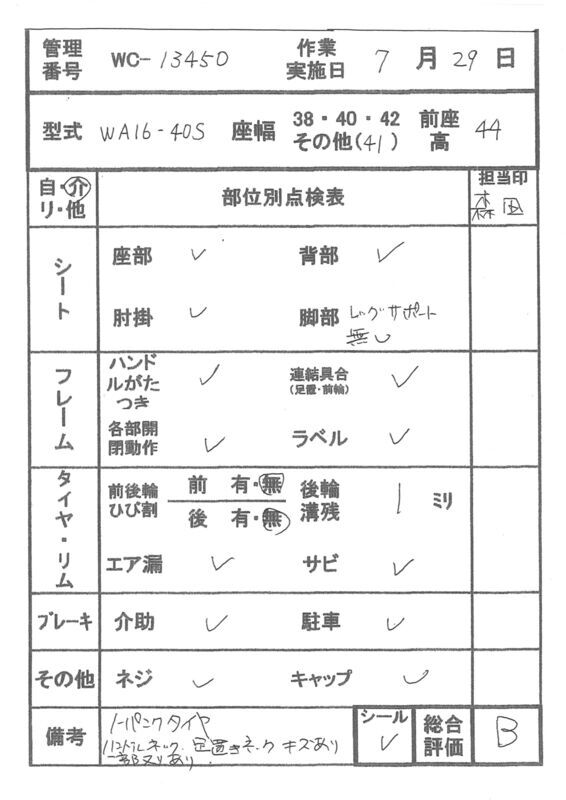 管理番号 WC-13450 作業実施日 7月29日
型式 WA16-40S 座幅 38・40・42 その他(41) 前座高 44
自・介 リ・他 部位別点検表 担当印 森田
シート 座部 ✓ 背部 ✓
肘掛 ✓ 脚部 レッグサポート無し
フレーム ハンドルがたつき ✓ 連結具合(足置・前輪) ✓
各部開閉動作 ✓ ラベル ✓
タイヤ・リム 前後輪ひび割 前 有・無 後輪溝残 1 ミリ
後 有・無
エア漏 ✓ サビ ✓
ブレーキ 介助 ✓ 駐車 ✓
その他 ネジ ✓ キャップ ✓
備考 ノーパンクタイヤ シール ✓ 総合評価 B
足置き キズあり
あり